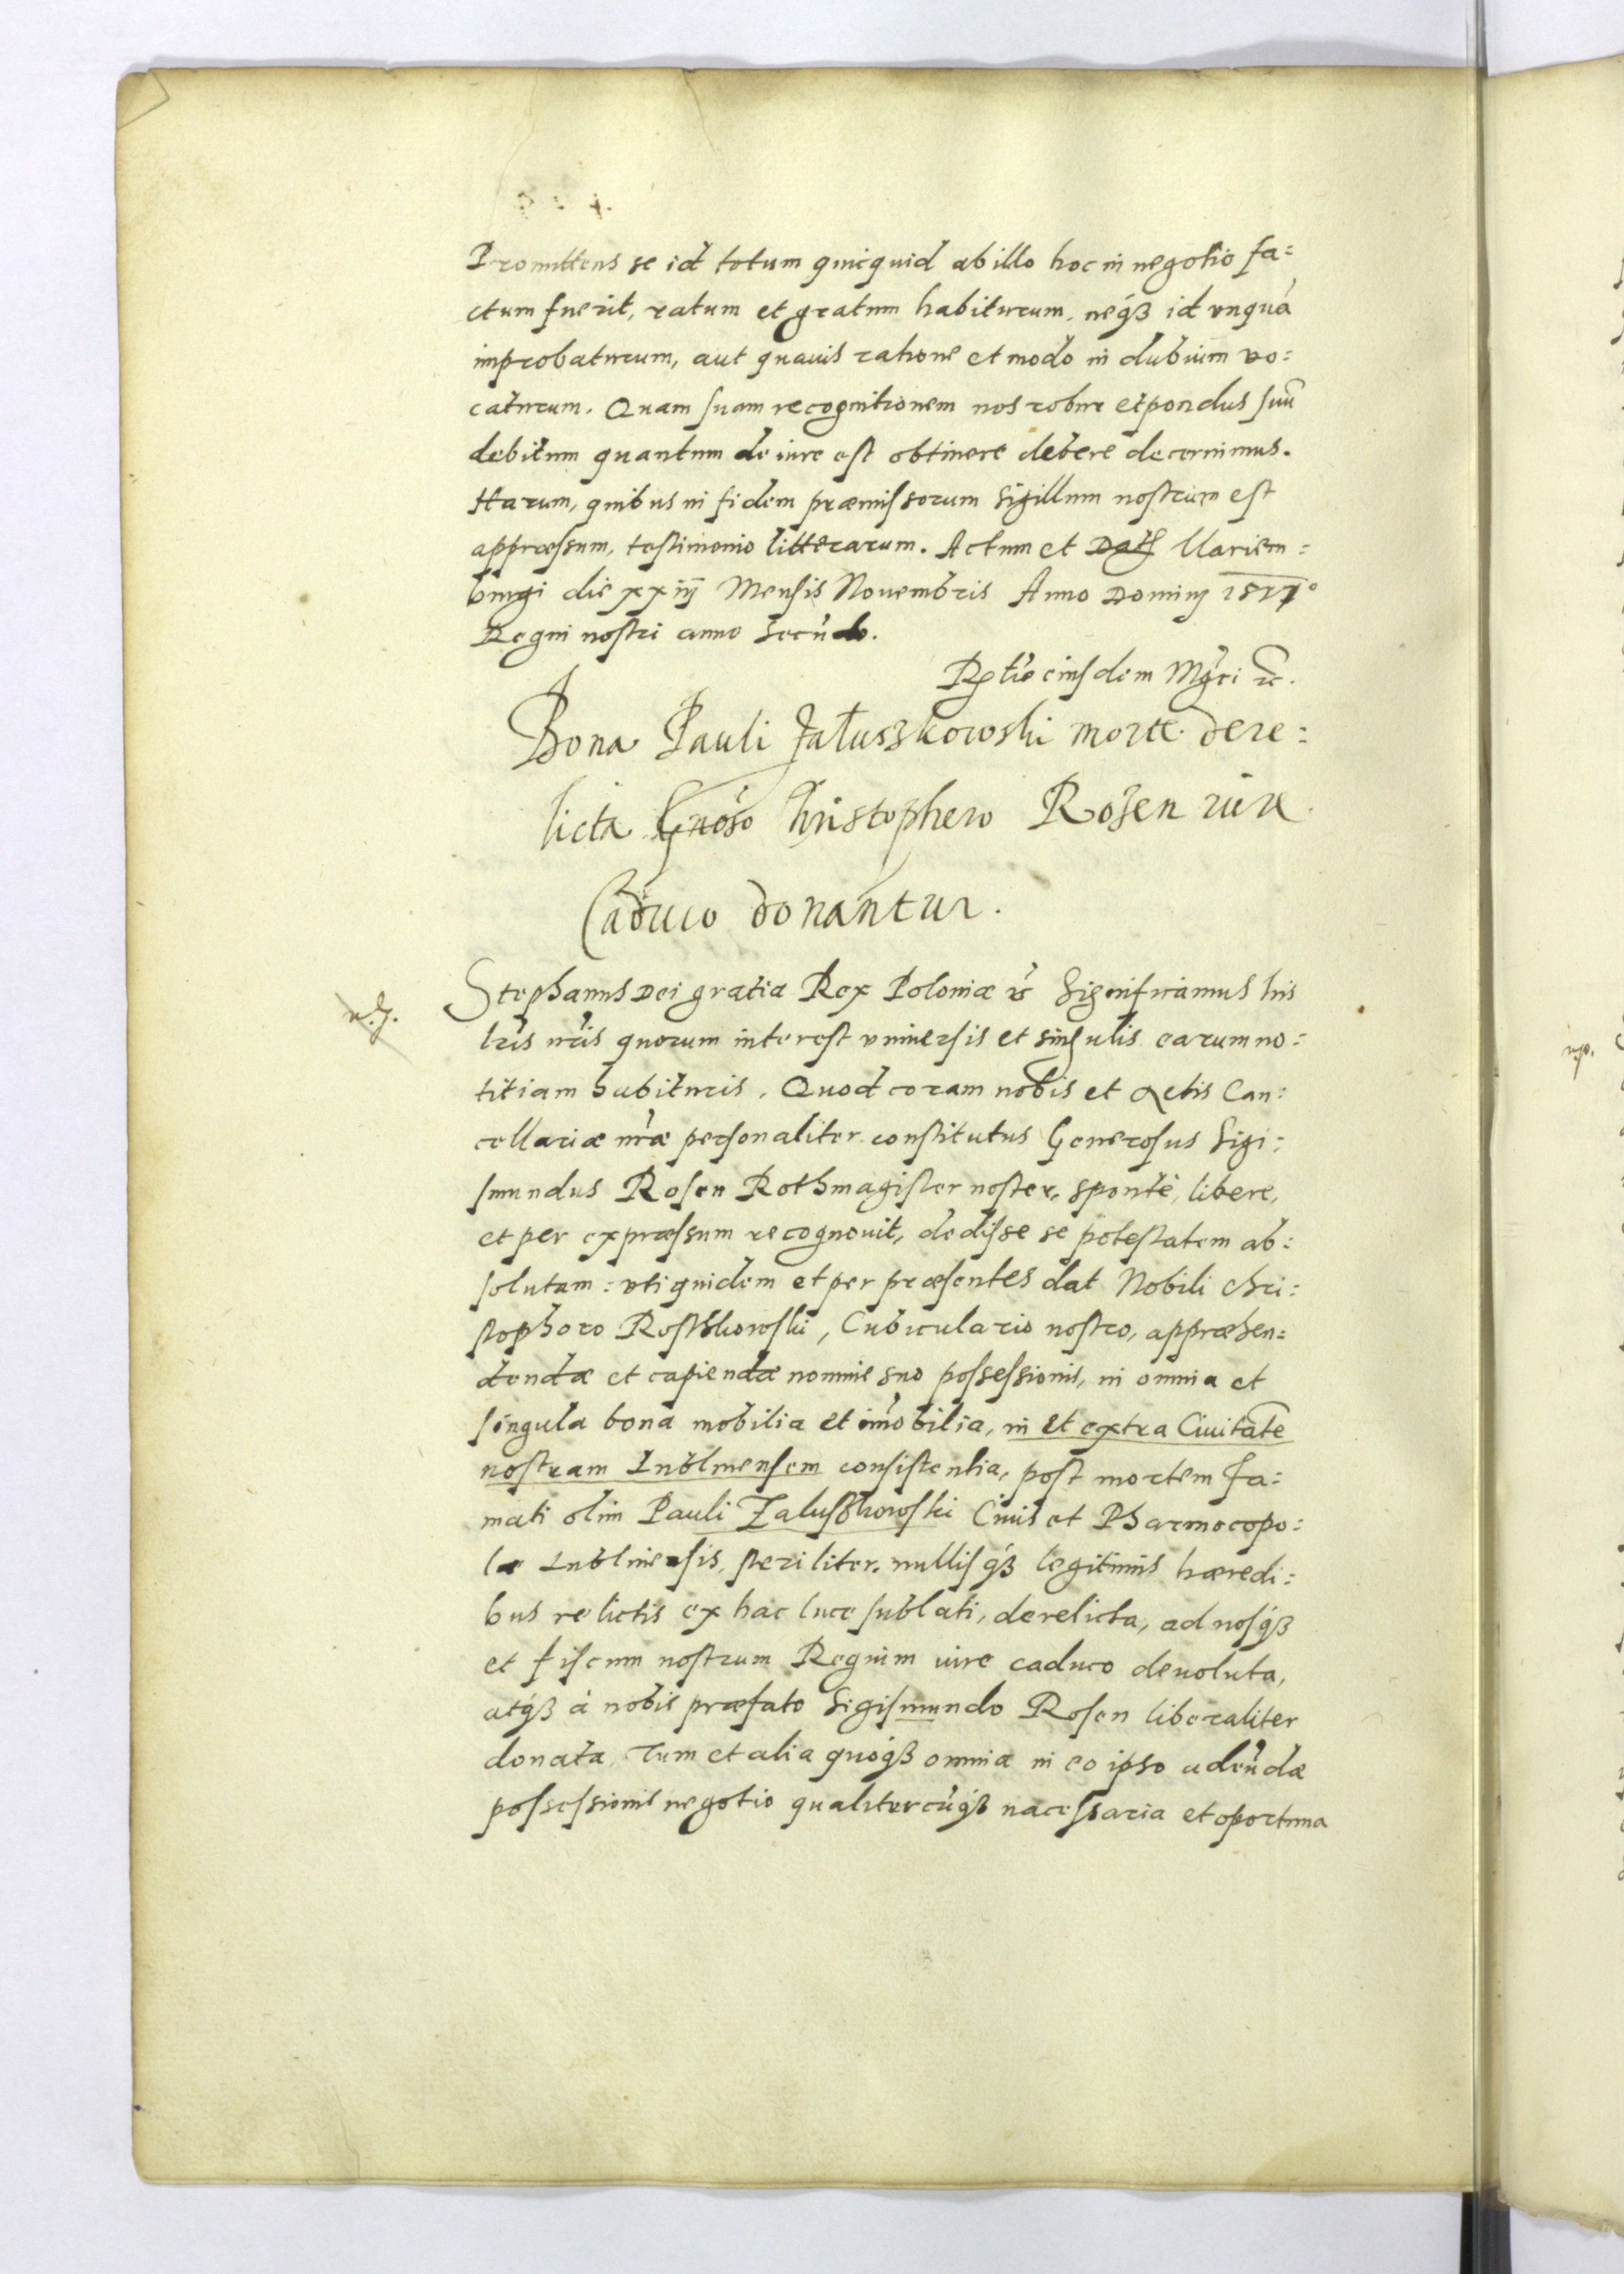 Promittens se id totum quicquid ab illo hoc in negotio fa=
ctum fuerit, ratum et gratum habiturum, neq́ꝫ id vnquā
improbaturum, aut quauis ratione et modo in dubium vo=
caturum. Quam suam recognitionem nos robur et pondus suū
debitum quantum de iure est obtinere debere decernimus.
Harum, quibus in fidem præmissorum Sigillum nostrum est
appræssum, testimonio litterarum. Actum et Dat Mariem=
burgi die xxiij Mensis Nouembris Anno Dominj 1577º
Regni nostri anno Secūdo.
Rtie eiusdem Mgci ꝛc.
Bona Pauli Załuszkowski morte dere=
licta Gnoso Christophero Rosen iure
Caduco donantur.
Stephanus Dei gratia Rex Poloniæ ꝛc Significamus his
lris nris quorum interest vniuersis et singulis earum no=
titiam habituris. Quod coram nobis et Actis Can=
cellariæ nræ personaliter constitutus Generosus Sigi=
smundus Rosen Rothmagister noster, sponte, libere,
et per expræssum recognouit, dedisse se potestatem ab=
solutam: vti quidem et per præsentes dat Nobili Chri=
stophoro Rostkowski, Cubiculario nostro, appræhen=
dendæ et capiendæ nomine suo possessionis, in omnia et
singula bona mobilia et im̄obilia, in et extra Ciuitatē
nostram Lublinensem consistentia, post mortem Fa=
mati olim Pauli Zaluskowski Ciuis et Pharmocopo=
læ Lublinensis, steriliter, nullisq́ꝫ legitimis hæredi=
bus relictis ex hac luce sublati, derelicta, ad nosq́ꝫ
et fiscum nostrum Regium iure caduco deuoluta,
atq́ꝫ à nobis præfato Sigismundo Rosen liberaliter
donata, Tum et alia quoq́ꝫ omnia in eo ipso adeūdæ
possessionis negotio qualitercūq́ꝫ nacessaria et oportuna